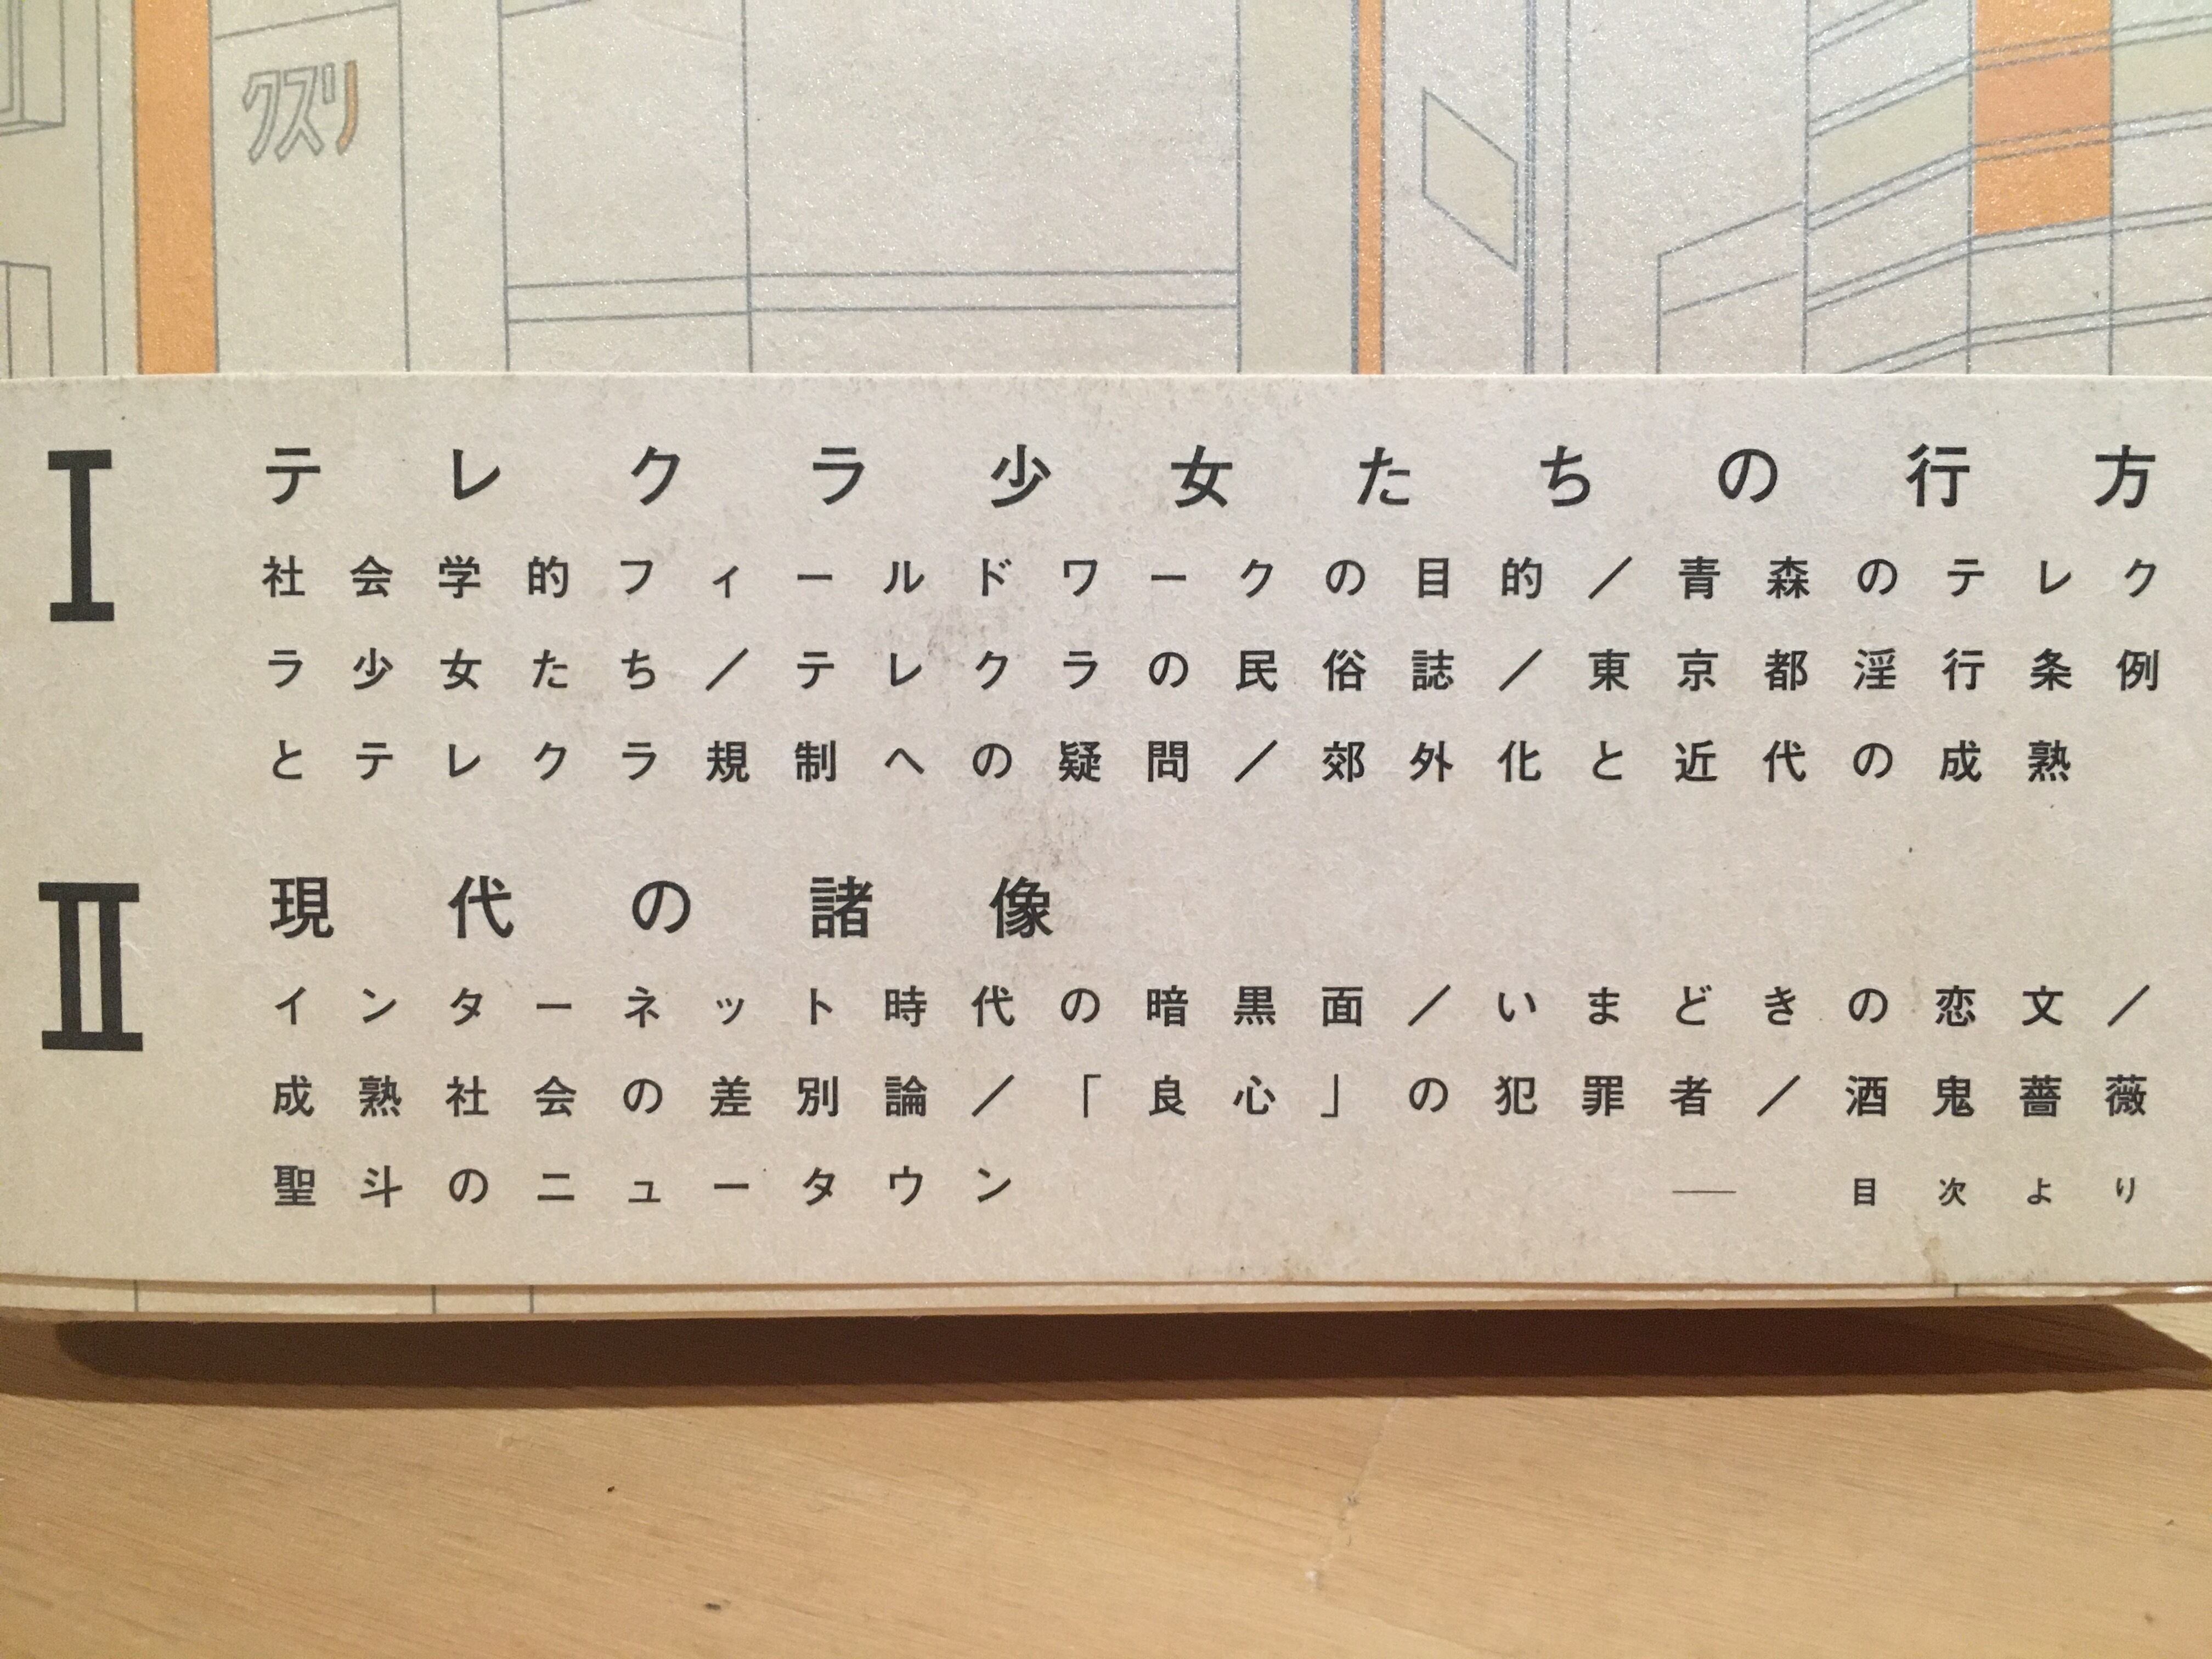 クスリ
I テレクラ少女たちの行方
社会学的フィールドワークの目的／青森のテレク
ラ少女たち／テレクラの民俗誌／東京都淫行条例
とテレクラ規制への疑問／郊外化と近代の成熟
II 現代の諸像
インターネット時代の暗黒面／いまどきの恋文／
成熟社会の差別論／「良心」の犯罪者／酒鬼薔薇
聖斗のニュータウン ── 目次より